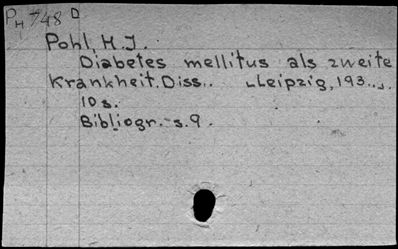 PH 748 D
Pohl, H.J.
Diabetes mellitus als zweite
Krankheit. Diss.. Leipzig, 193..,.
10 s.
Bibliogr.-s.9.